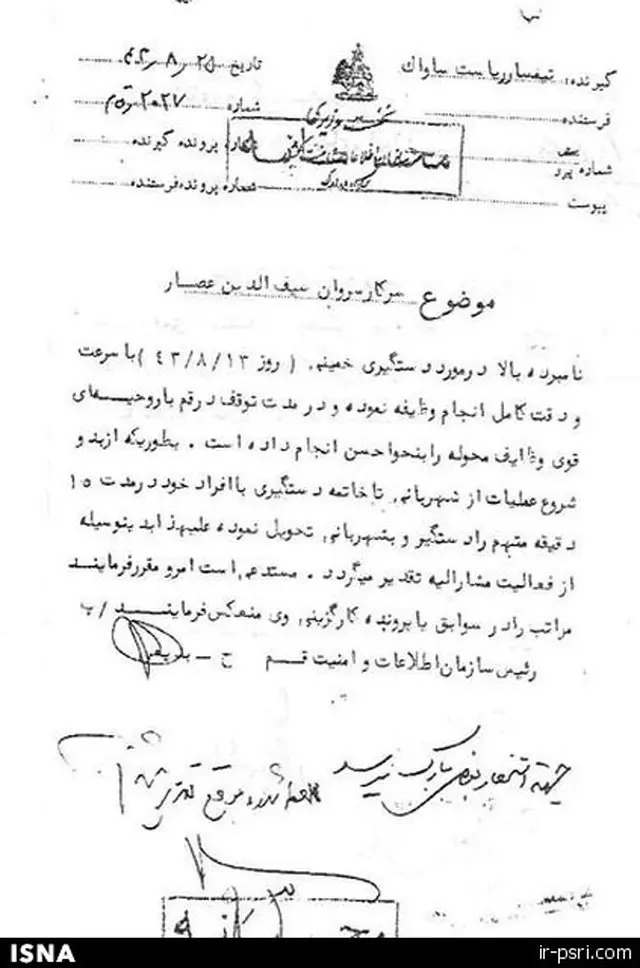 گیرنده: تیمسار ریاست ساواک
تاریخ
فرستنده
شماره ۲۰۲۷
شماره پیرو
شماره پرونده گیرنده
پیوست
شماره پرونده فرستنده
نخست وزیری
موضوع سرکار سروان سیف الدین عصار
نامبرده بالا در مورد دستگیری خمینی ( روز ٤٣/٨/١٣ ) با سرعت
و دقت کامل انجام وظیفه نموده و در مدت توقف در قم با روحیه‌ای
قوی وظایف محوله را بنحو احسن انجام داده است . بطوریکه از بدو
شروع عملیات از شهربانی تا خاتمه دستگیری با افراد خود در مدت ١٥
دقیقه متهم را دستگیر و بشهربانی تحویل نموده علیهذا بدینوسیله
از فعالیت مشارالیه تقدیر میگردد . مستدعی است امر و مقرر فرمایند
مراتب را در سوابق یا پرونده کارگزینی وی منعکس فرمایند /پ
رئیس سازمان اطلاعات و امنیت قم ح - بدیعی
جهة استحضار
ملاحظه شد
ISNA
ir-psri.com